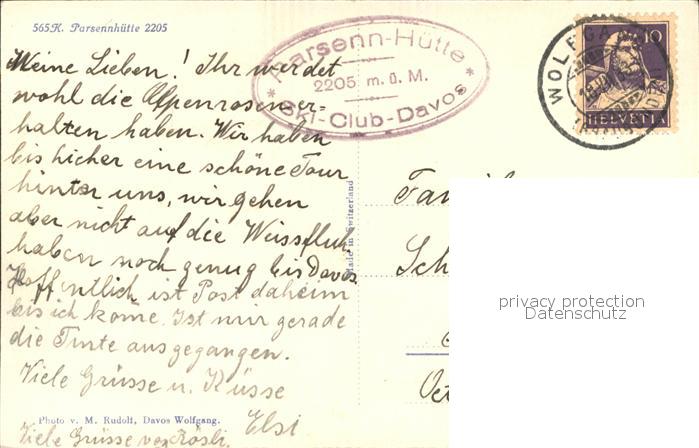 565K. Parsennhütte 2205
Parsenn-Hütte
2205 m.ü.M.
Ski-Club-Davos
WOLFGANG
10
HELVETIA
Meine Lieben! Ihr werdet
wohl die Alpenrosen er=
halten haben. Wir haben
bis hieher eine schöne Tour
hinter uns, wir gehen
aber nicht auf die Weissfluh,
haben noch genug bis Davos.
Hoffentlich ist Post daheim
bis ich kome. Ist mir gerade
die Tinte ausgegangen.
Viele Grüsse u. Küsse
Elsi
Viele Grüsse von Rösli.
Made in Switzerland
Photo v. M. Rudolf, Davos Wolfgang.
Fam
Sch
privacy protection
Datenschutz